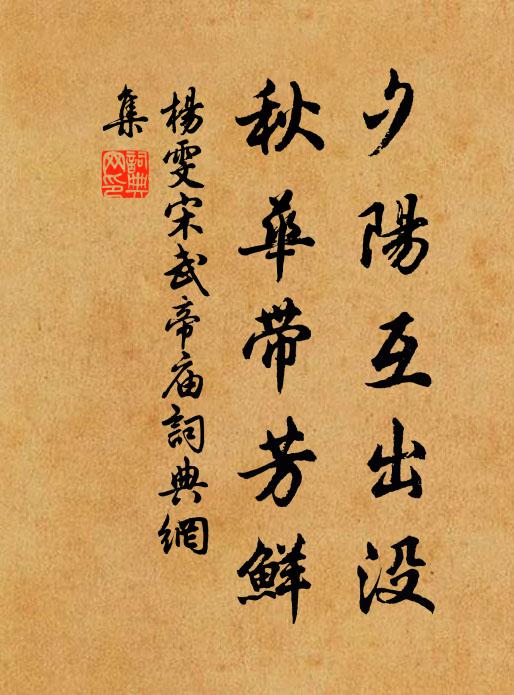 夕陽互出没
秋華带芳鮮
楊雯宋武帝庙詞典網
集
詞典網印